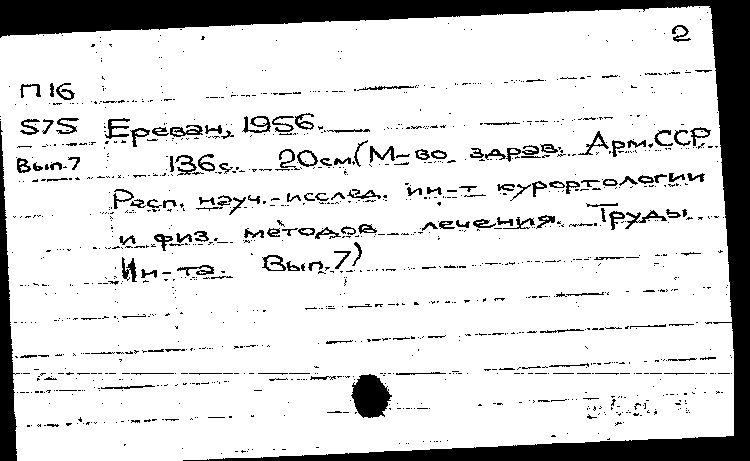 2
П16
575 Ереван, 1956.
Вып.7 136с. 20см. (М-во здрав. Арм.ССР
Респ. науч.-исслед. ин-т курортологии
и физ. методов лечения. Труды
Ин-та. Вып.7)